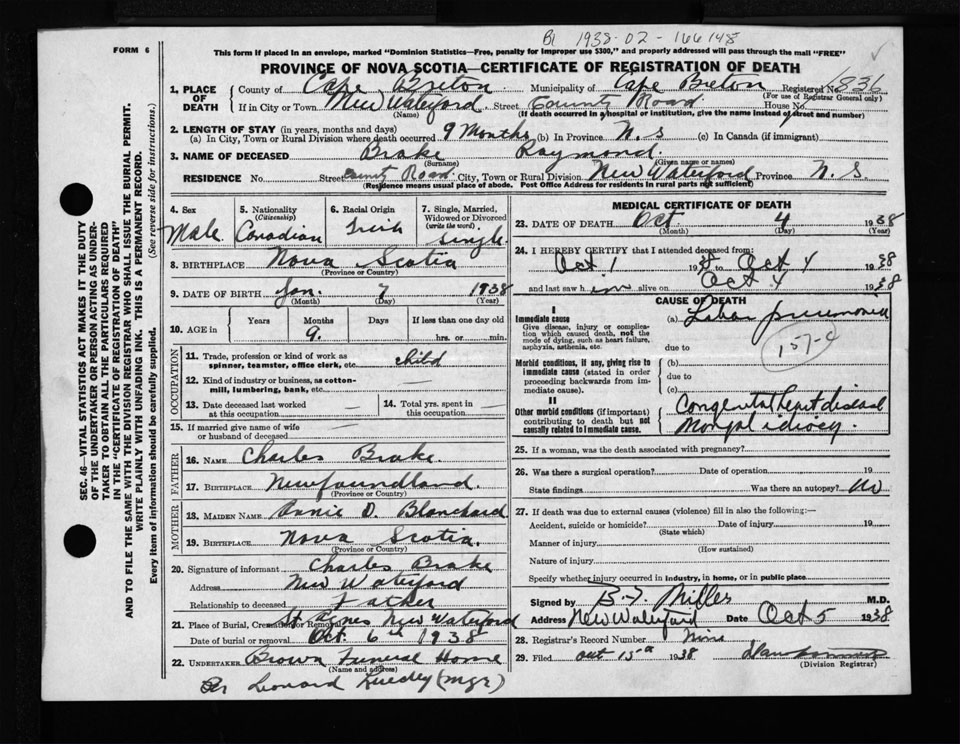 Bl 1938-02-166148
FORM 6
This form if placed in an envelope, marked "Dominion Statistics—Free, penalty for improper use $300," and properly addressed will pass through the mail "FREE"
PROVINCE OF NOVA SCOTIA—CERTIFICATE OF REGISTRATION OF DEATH
SEC. 46—VITAL STATISTICS ACT MAKES IT THE DUTY
OF THE UNDERTAKER OR PERSON ACTING AS UNDER-
TAKER TO OBTAIN ALL THE PARTICULARS REQUIRED
IN THE "CERTIFICATE OF REGISTRATION OF DEATH"
AND TO FILE THE SAME WITH THE DIVISION REGISTRAR WHO SHALL ISSUE THE BURIAL PERMIT.
WRITE PLAINLY WITH UNFADING INK. THIS IS A PERMANENT RECORD.
Every item of information should be carefully supplied. (See reverse side for instructions.)
1. PLACE OF DEATH County of Cape Breton Municipality of Cape Breton Registered No. 836
(For use of Registrar General only)
If in City or Town New Waterford Street County Road House No.
(Name) (If death occurred in a hospital or institution, give the name instead of street and number)
2. LENGTH OF STAY (in years, months and days)
(a) In City, Town or Rural Division where death occurred 9 Months (b) In Province N.S (c) In Canada (if immigrant)
3. NAME OF DECEASED Brake Raymond.
(Surname) (Given name or names)
RESIDENCE No. Street County Road City, Town or Rural Division New Waterford Province N.S.
(Residence means usual place of abode. Post Office Address for residents in rural parts not sufficient)
4. Sex 5. Nationality (Citizenship) 6. Racial Origin 7. Single, Married, Widowed or Divorced (write the word)
Male Canadian Irish Single.
8. BIRTHPLACE Nova Scotia
(Province or Country)
9. DATE OF BIRTH Jan. 7 1938
(Month) (Day) (Year)
10. AGE in Years Months Days If less than one day old
9. hrs. or min.
OCCUPATION
11. Trade, profession or kind of work as spinner, teamster, office clerk, etc. child
12. Kind of industry or business, as cotton-mill, lumbering, bank, etc. —
13. Date deceased last worked at this occupation — 14. Total yrs. spent in this occupation —
15. If married give name of wife or husband of deceased —
FATHER
16. NAME Charles Brake.
17. BIRTHPLACE Newfoundland.
(Province or Country)
MOTHER
18. MAIDEN NAME Annie D. Blanchard
19. BIRTHPLACE Nova Scotia.
(Province or Country)
20. Signature of informant Charles Brake
Address New Waterford
Relationship to deceased Father
21. Place of Burial, Cremation or Removal St. Agnes New Waterford
Date of burial or removal Oct. 6th 1938
22. UNDERTAKER Brown Funeral Home
(Name and address)
Per Leonard (mgr)
MEDICAL CERTIFICATE OF DEATH
23. DATE OF DEATH Oct. 4 1938
(Month) (Day) (Year)
24. I HEREBY CERTIFY that I attended deceased from:
Oct 1 1938 to Oct 4 1938
and last saw him alive on Oct 4 1938
CAUSE OF DEATH
I
Immediate cause (a) Lobar pneumonia
Give disease, injury or complication which caused death, not the mode of dying, such as heart failure, asphyxia, asthenia, etc.
due to
157-c
Morbid conditions, if any, giving rise to immediate cause (stated in order proceeding backwards from immediate cause).
(b)
due to
(c)
II
Other morbid conditions (if important) contributing to death but not causally related to immediate cause.
Congenital heart disease
Mongol idiocy.
25. If a woman, was the death associated with pregnancy?
26. Was there a surgical operation? Date of operation 19
State findings Was there an autopsy? no
27. If death was due to external causes (violence) fill in also the following:—
Accident, suicide or homicide? Date of injury 19
(State which)
Manner of injury
(How sustained)
Nature of injury
Specify whether injury occurred in industry, in home, or in public place
Signed by B.J. Miller M.D.
Address New Waterford Date Oct 5 1938
28. Registrar's Record Number Nine
29. Filed Oct 15th 1938
(Division Registrar)